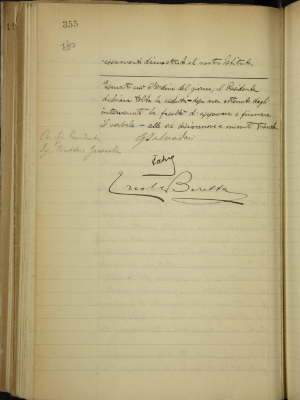 355
ressamenti dimostrati al nostro Istituto.
Esaurito così l'Ordine del giorno, il Presidente
dichiara tolta la seduta - dopo aver ottenuto dagli
intervenuti la facoltà di approvare e firmare
il verbale - alle ore diciannove e minuti trenta.
Il Direttore Generale
Ercole Beretta